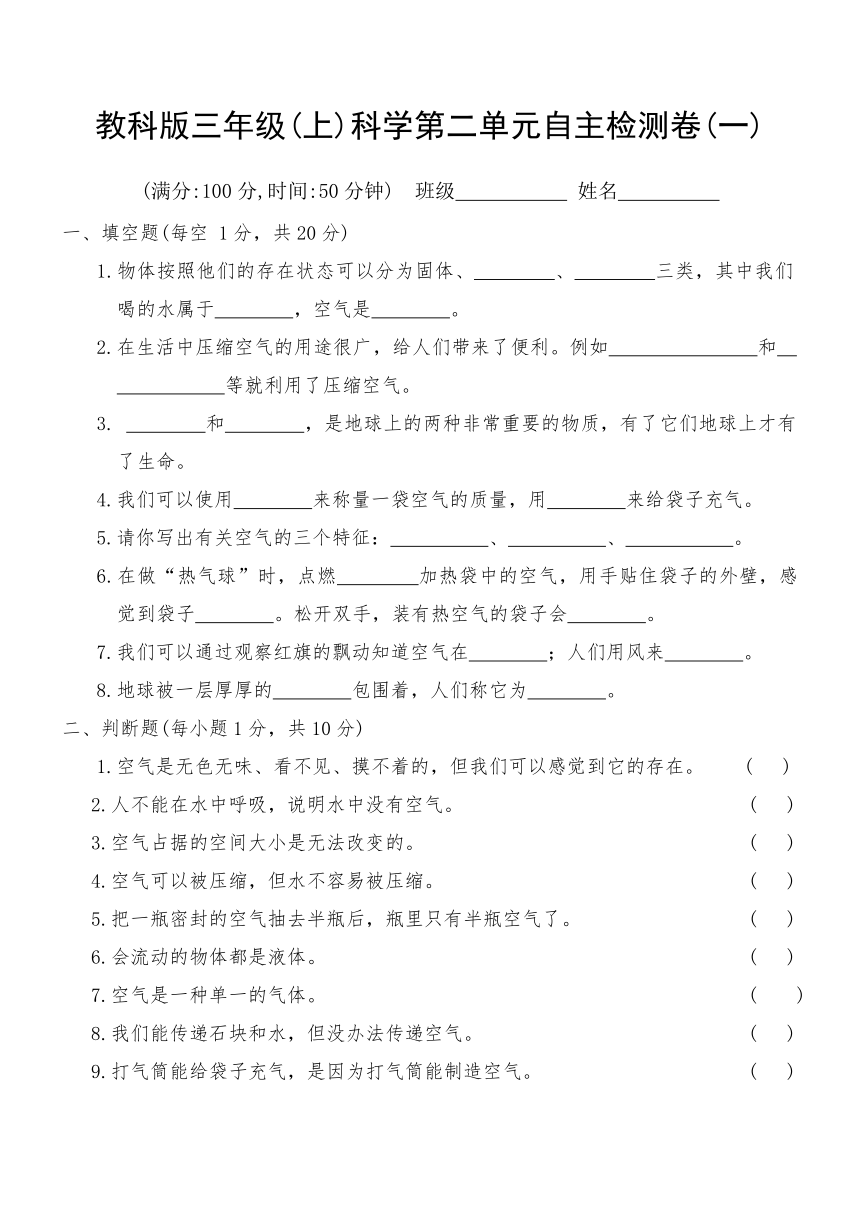 教科版三年级(上)科学第二单元自主检测卷(一)
(满分:100分,时间:50分钟) 班级__________ 姓名__________
一、填空题(每空 1分，共20分)
1.物体按照他们的存在状态可以分为固体、________、________三类，其中我们
喝的水属于________，空气是________。
2.在生活中压缩空气的用途很广，给人们带来了便利。例如______________和__
__________等就利用了压缩空气。
3. ________和________，是地球上的两种非常重要的物质，有了它们地球上才有
了生命。
4.我们可以使用________来称量一袋空气的质量，用________来给袋子充气。
5.请你写出有关空气的三个特征：__________、__________、___________。
6.在做“热气球”时，点燃________加热袋中的空气，用手贴住袋子的外壁，感
觉到袋子________。松开双手，装有热空气的袋子会________。
7.我们可以通过观察红旗的飘动知道空气在________；人们用风来________。
8.地球被一层厚厚的________包围着，人们称它为________。
二、判断题(每小题1分，共10分)
1.空气是无色无味、看不见、摸不着的，但我们可以感觉到它的存在。 ( )
2.人不能在水中呼吸，说明水中没有空气。 ( )
3.空气占据的空间大小是无法改变的。 ( )
4.空气可以被压缩，但水不容易被压缩。 ( )
5.把一瓶密封的空气抽去半瓶后，瓶里只有半瓶空气了。 ( )
6.会流动的物体都是液体。 ( )
7.空气是一种单一的气体。 ( )
8.我们能传递石块和水，但没办法传递空气。 ( )
9.打气筒能给袋子充气，是因为打气筒能制造空气。 ( )